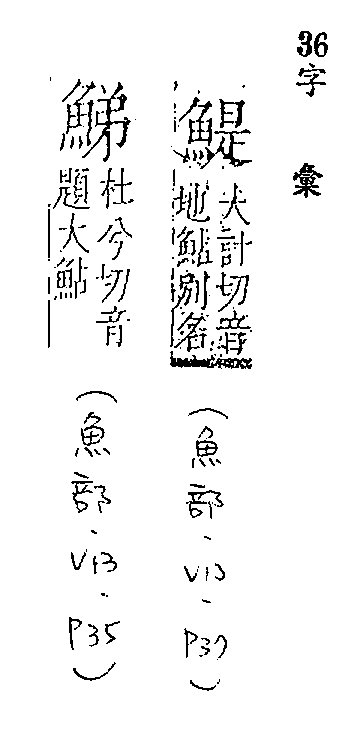 36
字彙
鯷
大計切音
地鮎別名
(魚部.V13.P37)
鮷
杜兮切音
題大鮎
(魚部.V13.P35)